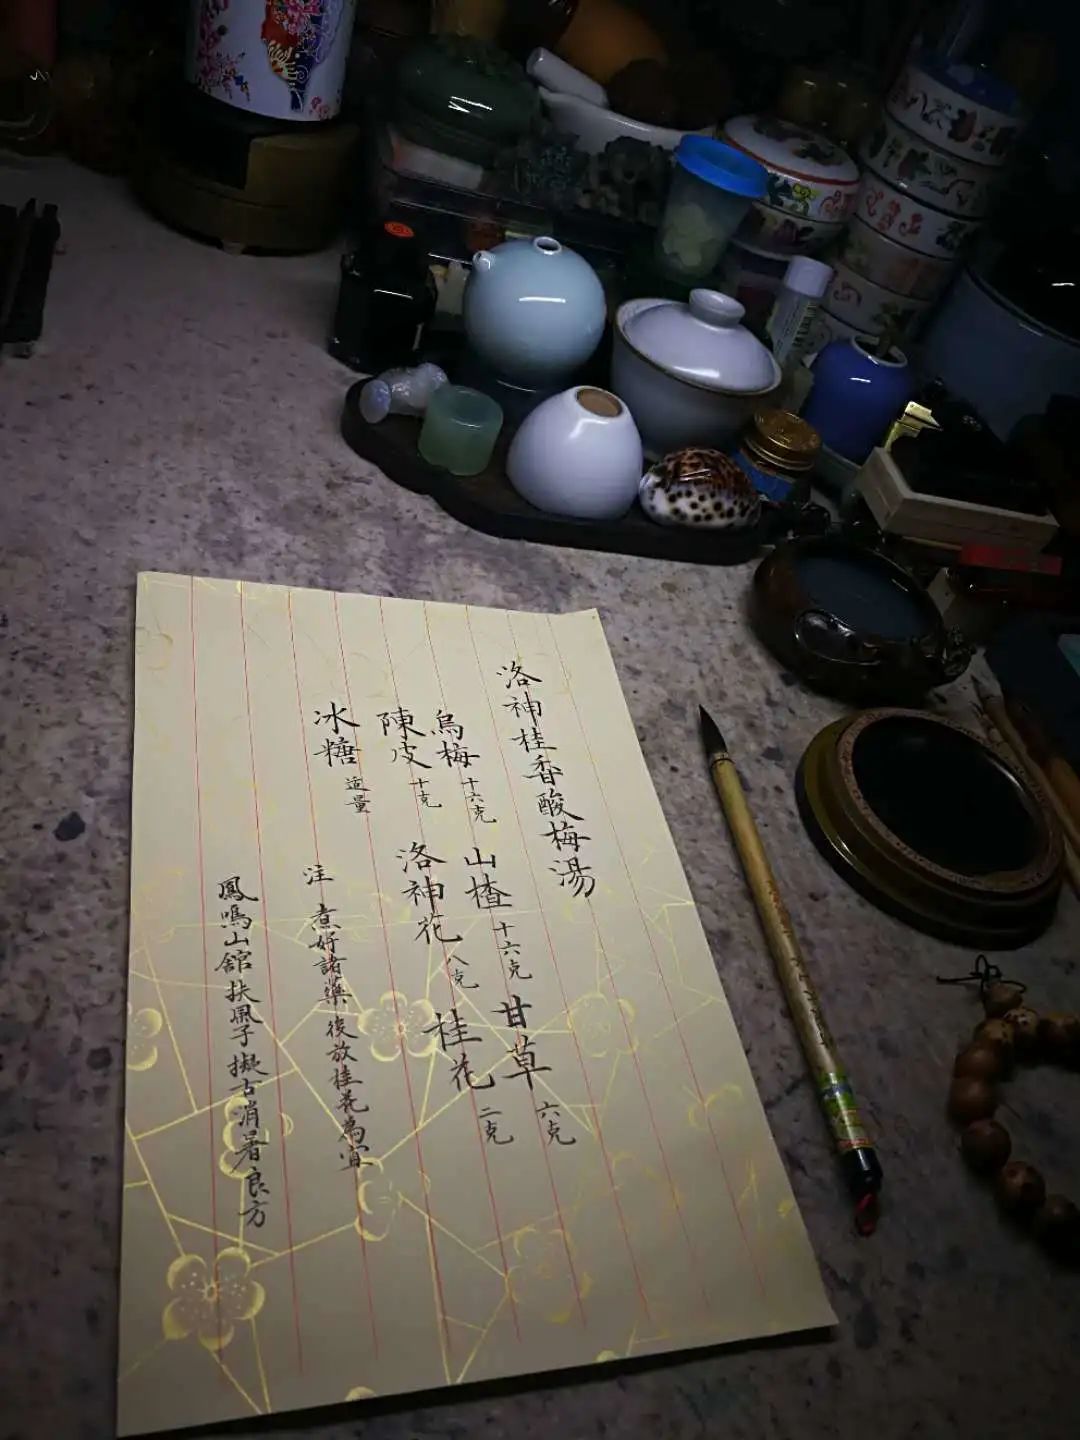 洛神桂香酸梅湯
烏梅十六克 山楂十六克 甘草六克
陳皮十克 洛神花八克 桂花二克
冰糖適量
注 煮好諸藥後放桂花為宜
鳳鳴山館扶風子擬古消暑良方